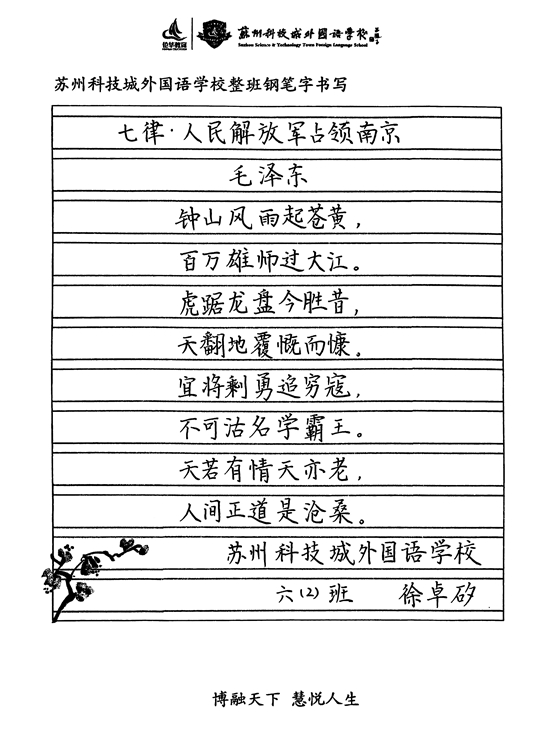 佐华教育
苏州科技城外国语学校
Suzhou Science & Technology Town Foreign Language School
苏州科技城外国语学校整班钢笔字书写
七律·人民解放军占领南京
毛泽东
钟山风雨起苍黄，
百万雄师过大江。
虎踞龙盘今胜昔，
天翻地覆慨而慷。
宜将剩勇追穷寇，
不可沽名学霸王。
天若有情天亦老，
人间正道是沧桑。
苏州科技城外国语学校
六(2)班 徐卓矽
博融天下 慧悦人生